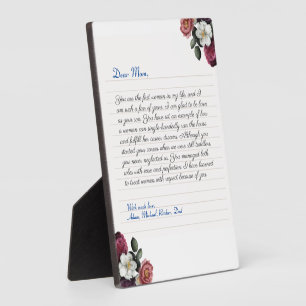 Dear Mom,
You are the first woman in my life, and I
am such a fan of yours. I am glad to be born
as your son. You have set an example of how
a woman can single-handedly run the house
and fulfill her career dreams. Although you
started your career when we were still toddlers,
you never neglected us. You managed both
roles with ease and perfection. I have learned
to treat women with respect because of you.
With much love,
Adam, Michael, Dad